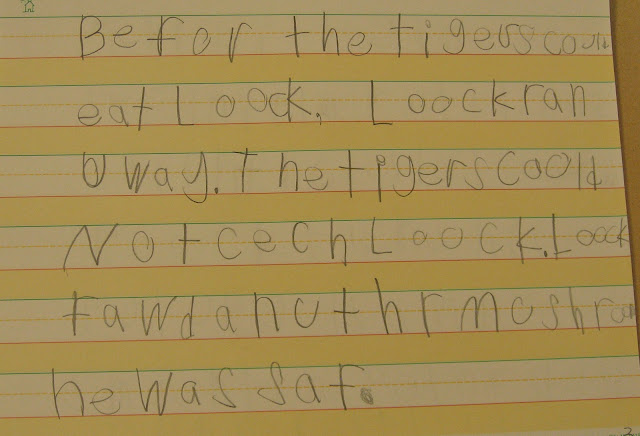 Befor the tigers coould
eat Loock. Loock ran
owway. The tigers coold
Not cech Loock. Loock
fawd anuthr mushran
he was saf.